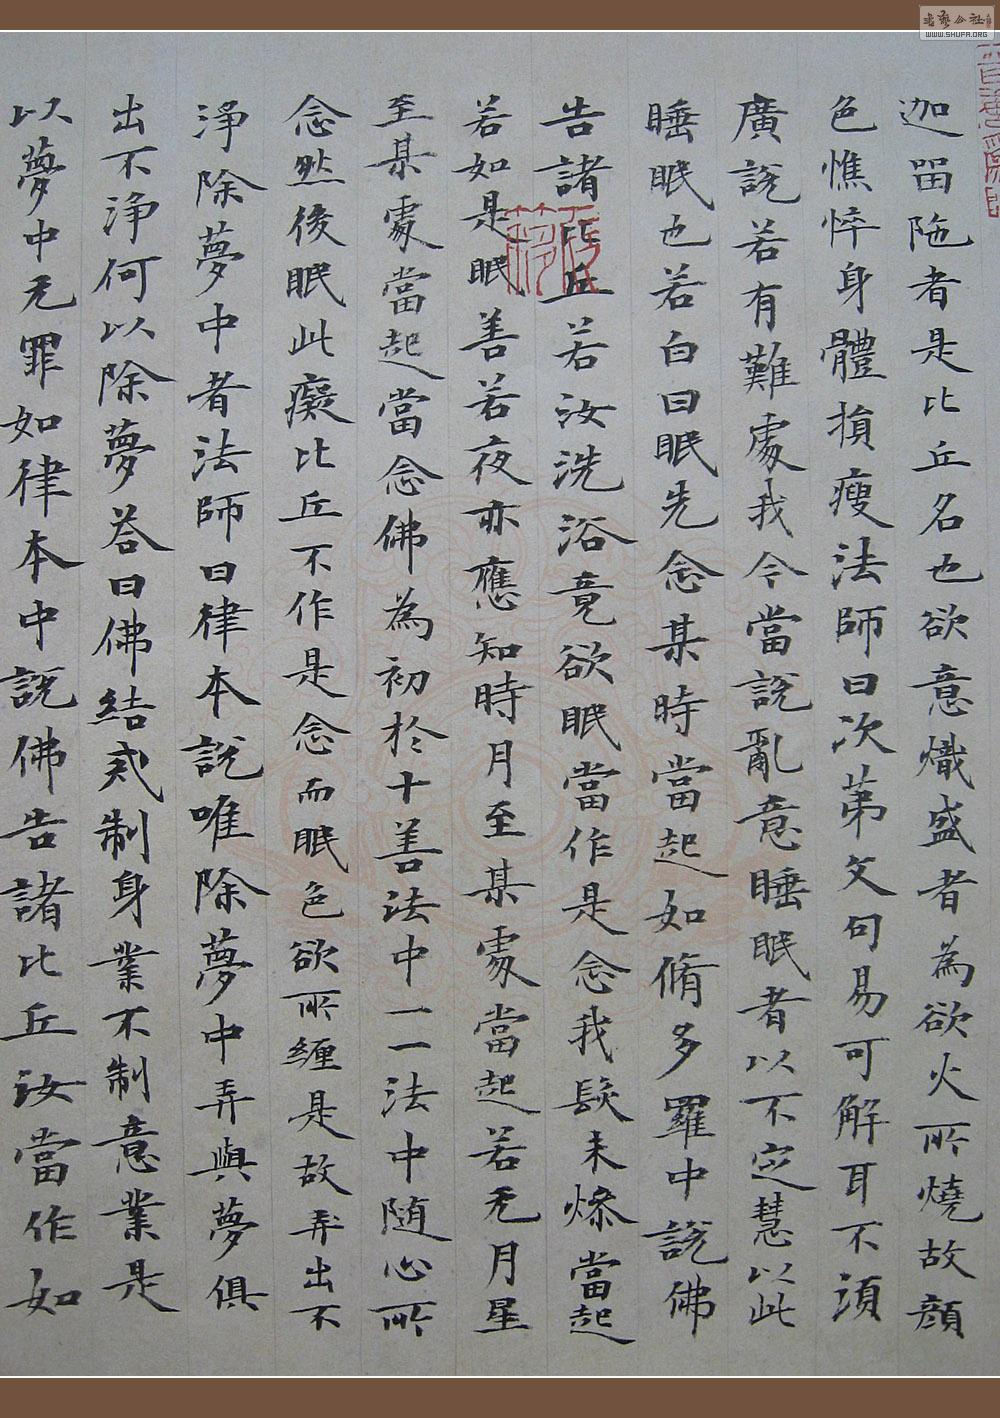 迦畱陁者是比丘名也欲意熾盛者為欲火所燒故顔
色憔悴身體損瘦法師曰次苐文句易可解耳不湏
廣說若有難處我今當說亂意睡眠者以不定慧以此
睡眠也若白日眠先念某時當起如脩多羅中說佛
告諸比丘若汝洗浴竟欲眠當作是念我髮未燥當起
若如是眠善若夜亦應知時月至某處當起若无月星
至某處當起當念佛為初於十善法中一一法中随心所
念然後眠此癡比丘不作是念而眠色欲所纏是故弄出不
淨除夢中者法師曰律本說唯除夢中弄與夢俱
出不淨何以除夢荅曰佛結戒制身業不制意業是
以夢中无罪如律本中說佛告諸比丘汝當作如
書藝公社
WWW.SHUFA.ORG